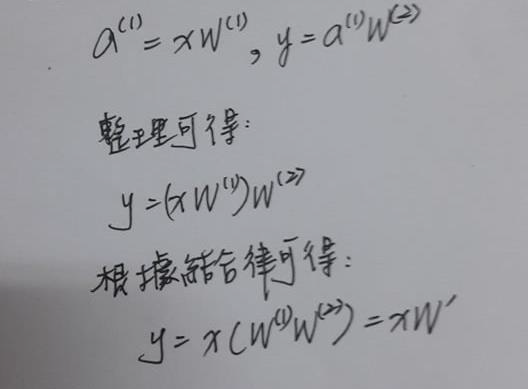 a⁽¹⁾ = xW⁽¹⁾, y = a⁽¹⁾W⁽²⁾
整理可得:
y = (xW⁽¹⁾)W⁽²⁾
根據結合律可得:
y = x(W⁽¹⁾W⁽²⁾) = xW′